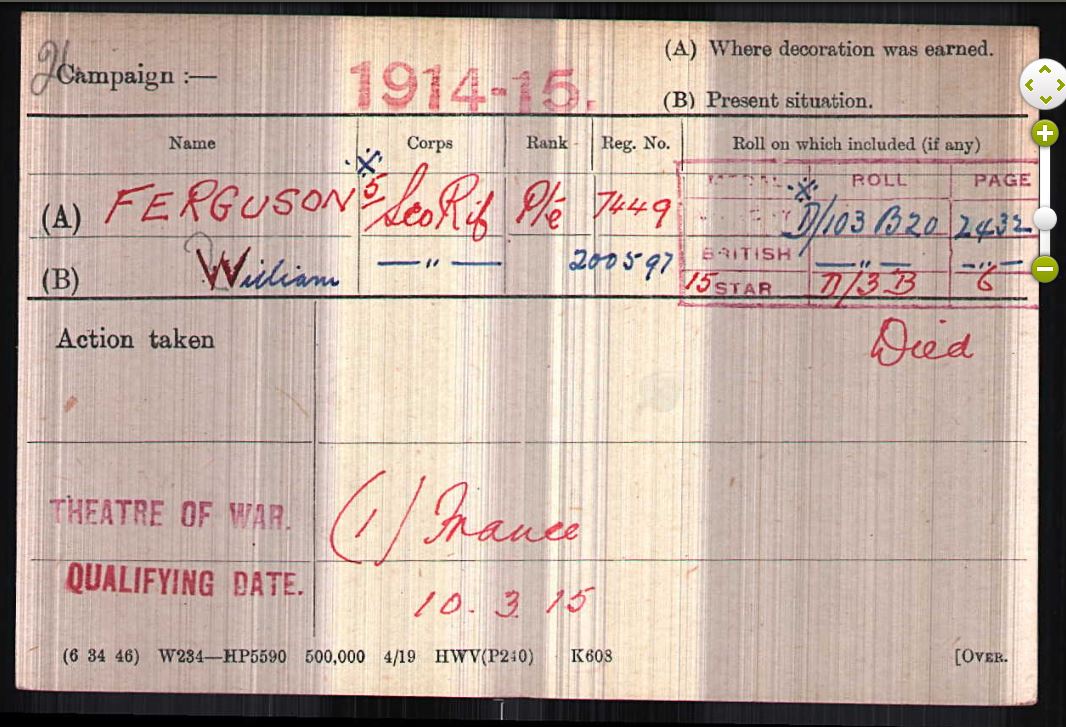 (A) Where decoration was earned.
Campaign :— 1914-15.
(B) Present situation.
Name Corps Rank Reg. No. Roll on which included (if any)
ROLL PAGE
(A) FERGUSON 5/ Sco Rif Pte 7449 D/103 B20 2432
BRITISH — " — — " —
(B) William — " — 200597
15 STAR D/3 B 6
Action taken Died
THEATRE OF WAR. (1) France
QUALIFYING DATE. 10. 3 15
(6 34 46) W234—HP5590 500,000 4/19 HWV(P240) K608 [OVER.